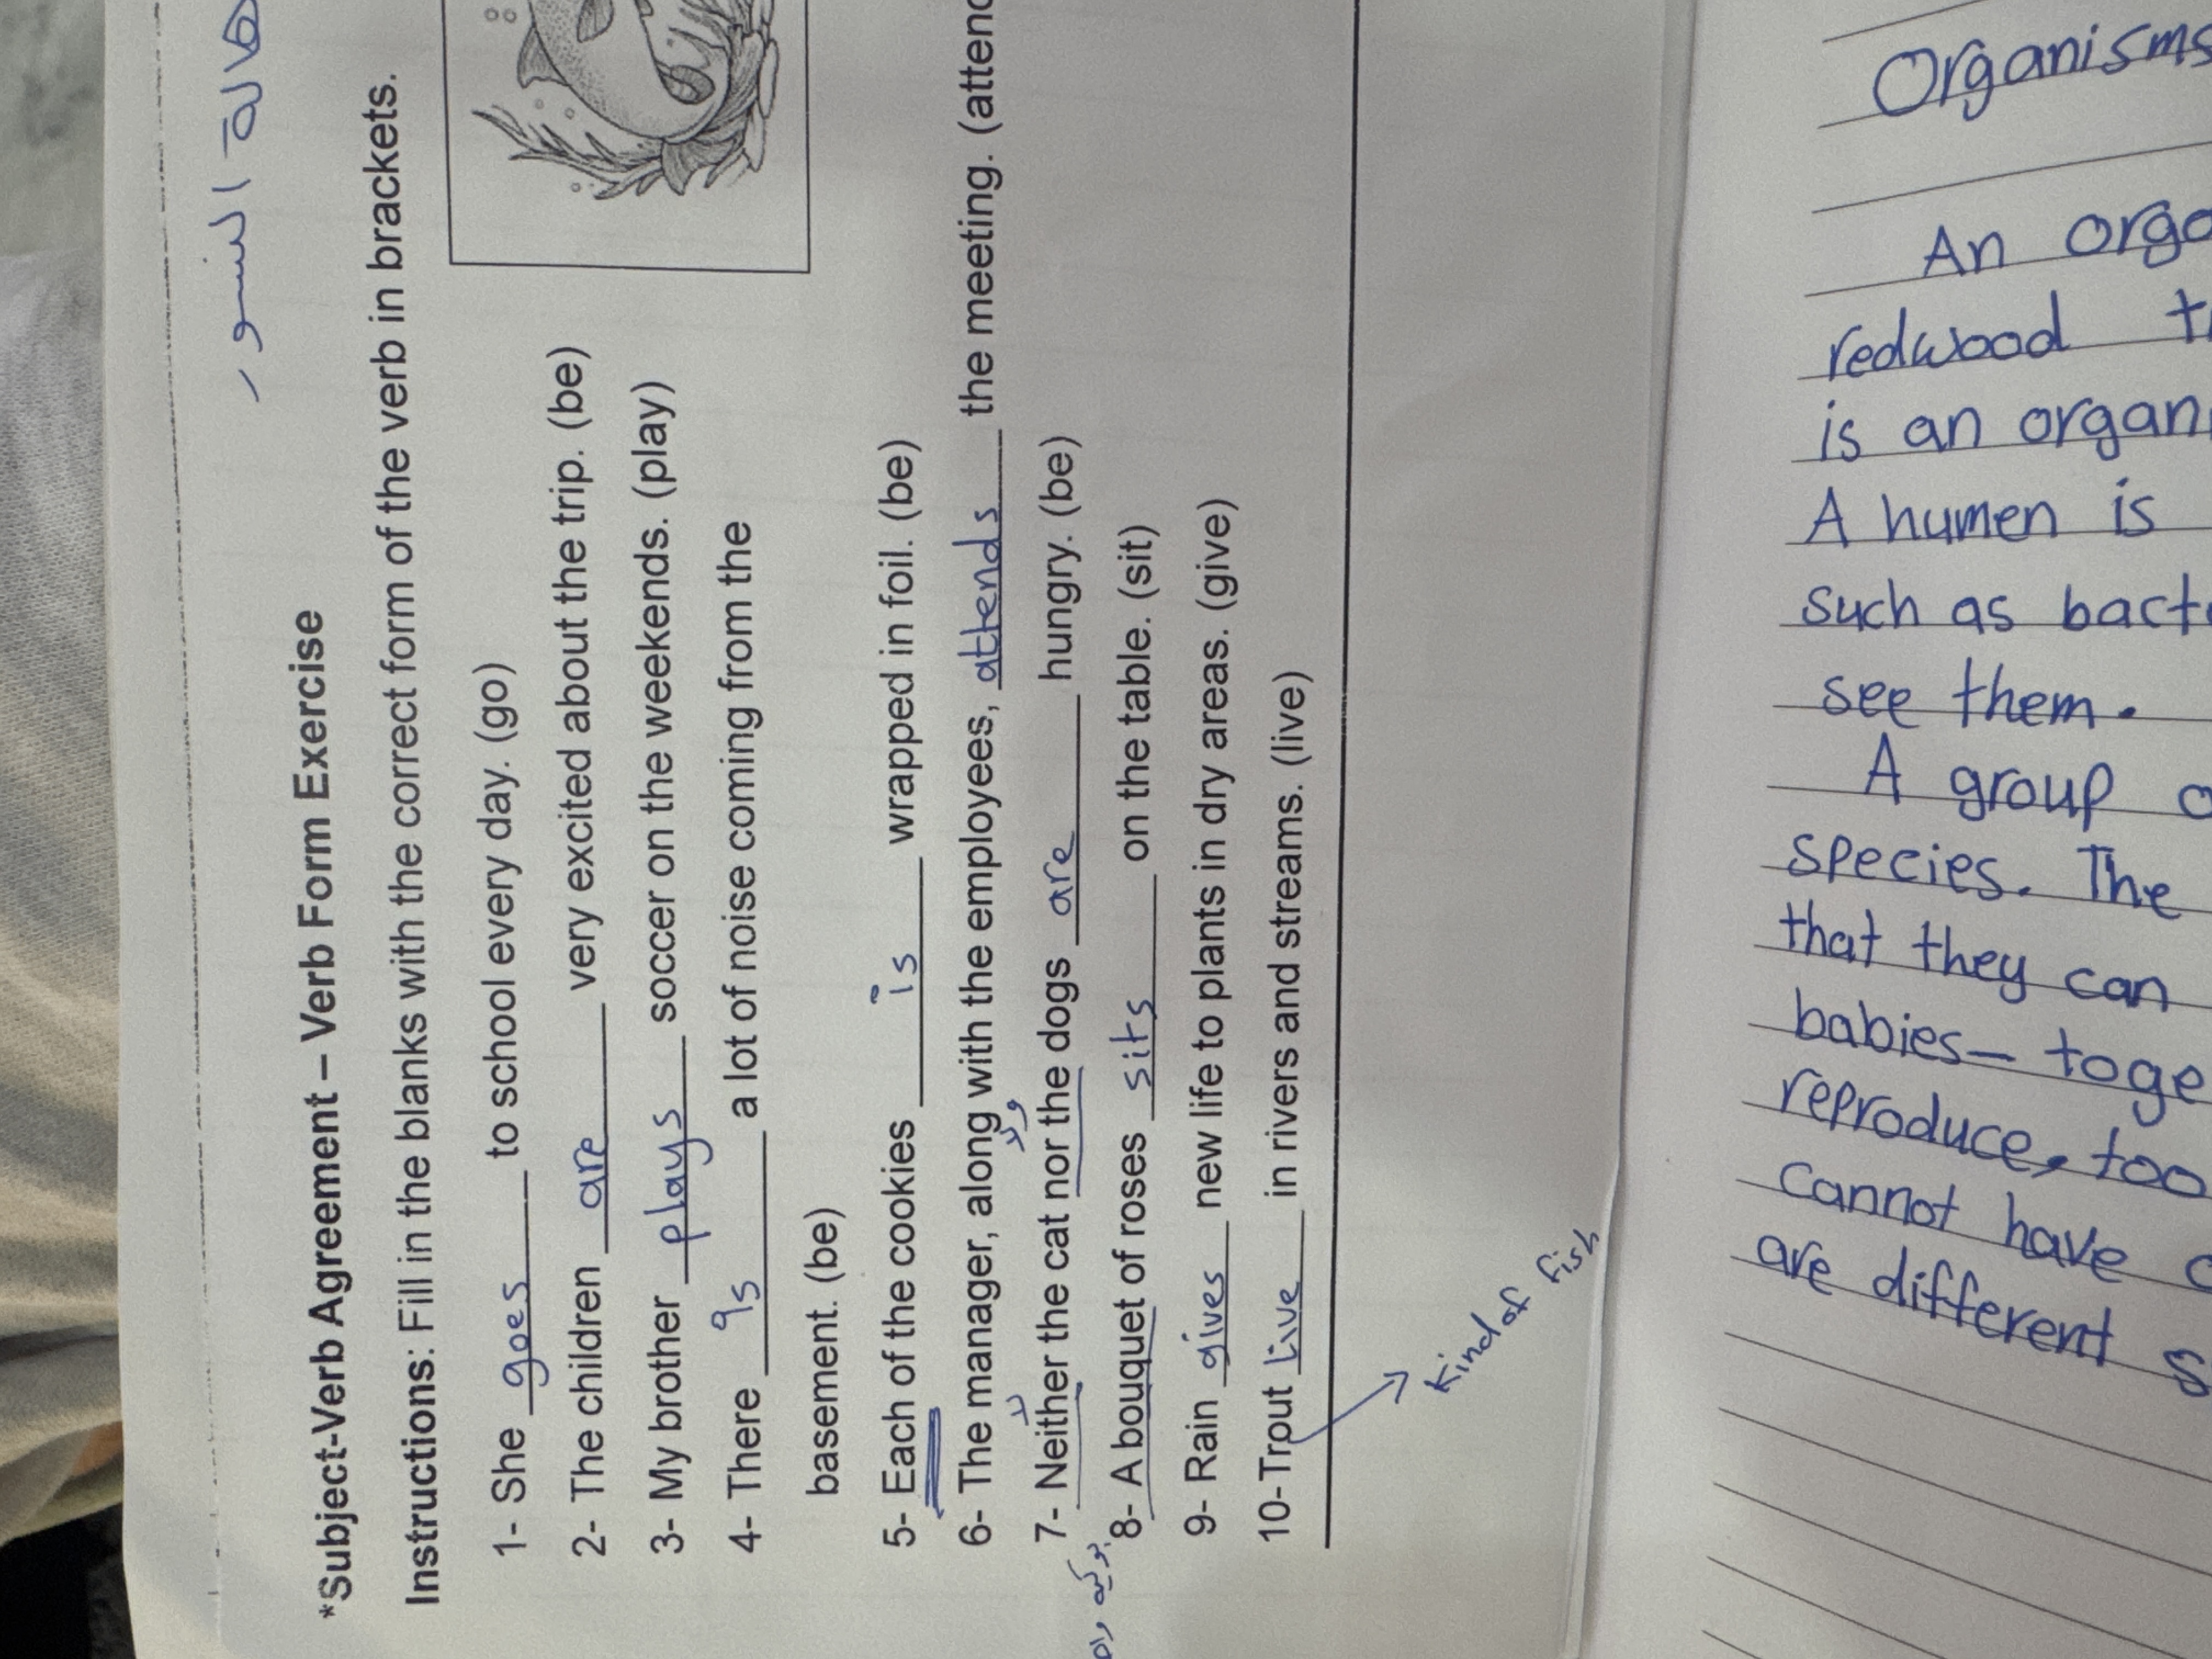 هالة النسور
*Subject-Verb Agreement – Verb Form Exercise
Instructions: Fill in the blanks with the correct form of the verb in brackets.
1- She goes to school every day. (go)
2- The children are very excited about the trip. (be)
3- My brother plays soccer on the weekends. (play)
4- There is a lot of noise coming from the
basement. (be)
5- Each of the cookies is wrapped in foil. (be)
6- The manager, along with the employees, attends the meeting. (attend
7- Neither the cat nor the dogs are hungry. (be)
8- A bouquet of roses sits on the table. (sit)
9- Rain gives new life to plants in dry areas. (give)
10- Trout live in rivers and streams. (live)
kind of fish
Organisms
An orga
redwood
is an organ
A humen is
such as bact
see them.
A group
species. The
that they can
babies– toge
reproduce, too
cannot have
are different